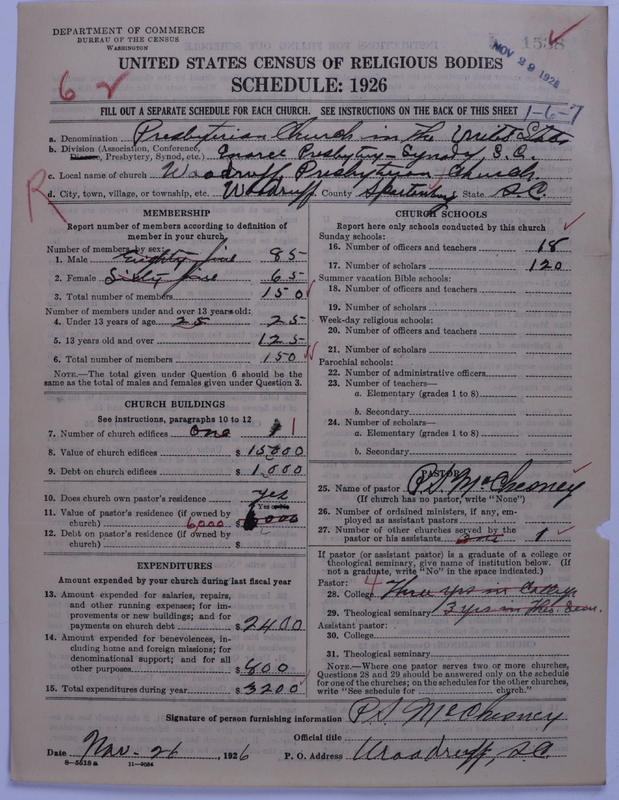 DEPARTMENT OF COMMERCE
BUREAU OF THE CENSUS
WASHINGTON
1538
NOV 29 1926
UNITED STATES CENSUS OF RELIGIOUS BODIES
SCHEDULE: 1926
6 2
FILL OUT A SEPARATE SCHEDULE FOR EACH CHURCH. SEE INSTRUCTIONS ON THE BACK OF THIS SHEET
1-6-7
a. Denomination Presbyterian Church in the United States
b. Division (Association, Conference, Diocese, Presbytery, Synod, etc.) Enoree Presbytery - Synod of S.C.
c. Local name of church Woodruff Presbyterian Church.
R
d. City, town, village, or township, etc. Woodruff County Spartanburg State S.C.
MEMBERSHIP
Report number of members according to definition of member in your church
Number of members by sex:
1. Male Eighty five 85
2. Female Sixty five 65
3. Total number of members 150
Number of members under and over 13 years old:
4. Under 13 years of age 25 25
5. 13 years old and over 125
6. Total number of members 150
NOTE.—The total given under Question 6 should be the same as the total of males and females given under Question 3.
CHURCH BUILDINGS
See instructions, paragraphs 10 to 12
7. Number of church edifices one 1
8. Value of church edifices $15000
9. Debt on church edifices $1000
10. Does church own pastor's residence yes
Yes or No
11. Value of pastor's residence (if owned by church) 6000 $6000
12. Debt on pastor's residence (if owned by church) $
EXPENDITURES
Amount expended by your church during last fiscal year
13. Amount expended for salaries, repairs, and other running expenses; for improvements or new buildings; and for payments on church debt $2400
14. Amount expended for benevolences, including home and foreign missions; for denominational support; and for all other purposes $800
15. Total expenditures during year $3200
CHURCH SCHOOLS
Report here only schools conducted by this church
Sunday schools:
16. Number of officers and teachers 18
17. Number of scholars 120
Summer vacation Bible schools:
18. Number of officers and teachers
19. Number of scholars
Week-day religious schools:
20. Number of officers and teachers
21. Number of scholars
Parochial schools:
22. Number of administrative officers
23. Number of teachers—
a. Elementary (grades 1 to 8)
b. Secondary
24. Number of scholars—
a. Elementary (grades 1 to 8)
b. Secondary
PASTOR
25. Name of pastor P.S. McChesney
(If church has no pastor, write "None")
26. Number of ordained ministers, if any, employed as assistant pastors
27. Number of other churches served by the pastor or his assistants one 1
If pastor (or assistant pastor) is a graduate of a college or theological seminary, give name of institution below. (If not a graduate, write "No" in the space indicated.)
Pastor: 4
28. College Three yrs in College
29. Theological seminary 3 yrs in Theo. Sem.
Assistant pastor:
30. College
31. Theological seminary
NOTE.—Where one pastor serves two or more churches, Questions 28 and 29 should be answered only on the schedule for one of the churches; on the schedules for the other churches, write "See schedule for church."
Signature of person furnishing information P.S. McChesney
Official title
Date Nov. 26, 1926 P. O. Address Woodruff, S.C.
8-5518 a 11-9064